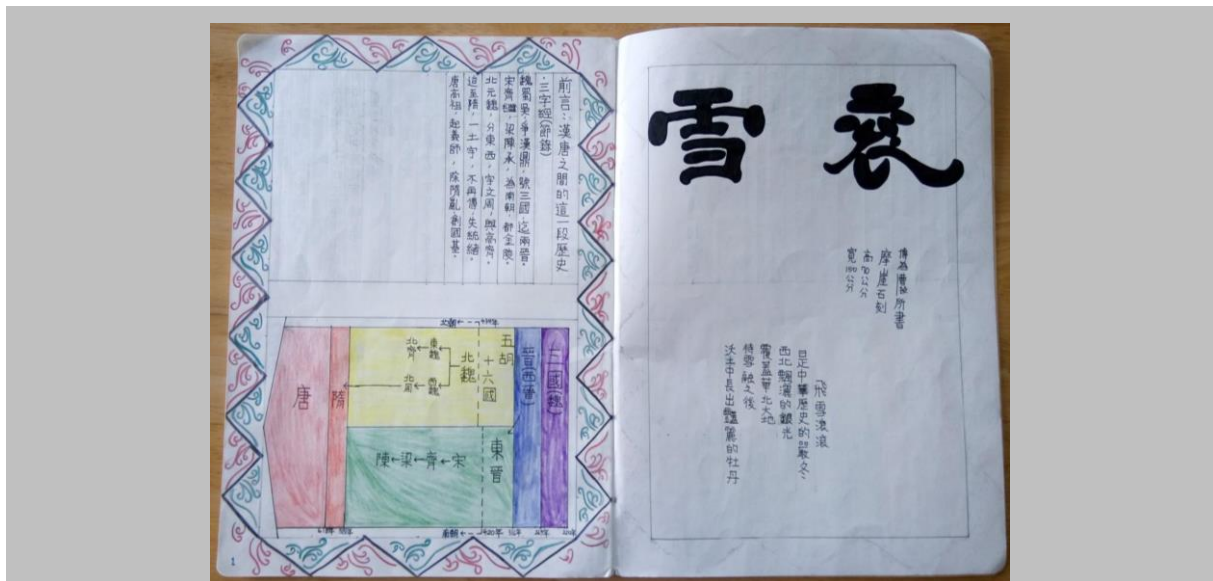 袞雪
傳為曹操所書
摩崖石刻
飛雪滾滾
是中華歷史的嚴冬、
西北飄灑的銀光
覆蓋華北大地
待雪融之後
沃土中長出豔麗的牡丹
前言:漢唐之間的這一段歷史
·三字經(節錄)
魏蜀吳,爭漢鼎,號三國,迄兩晉。
宋齊繼,梁陳承,為南朝,都金陵。
北元魏,分東西,宇文周,與高齊。
迨至隋,一土宇,不再傳,失統緒。
唐高祖,起義師,除隋亂,創國基。
三國(魏)
晉(西晉)
五胡
十六國
北魏
東魏
北齊
西魏
北周
東晉
宋→齊→梁→陳
隋
唐
北朝
439年
南朝
420年
1